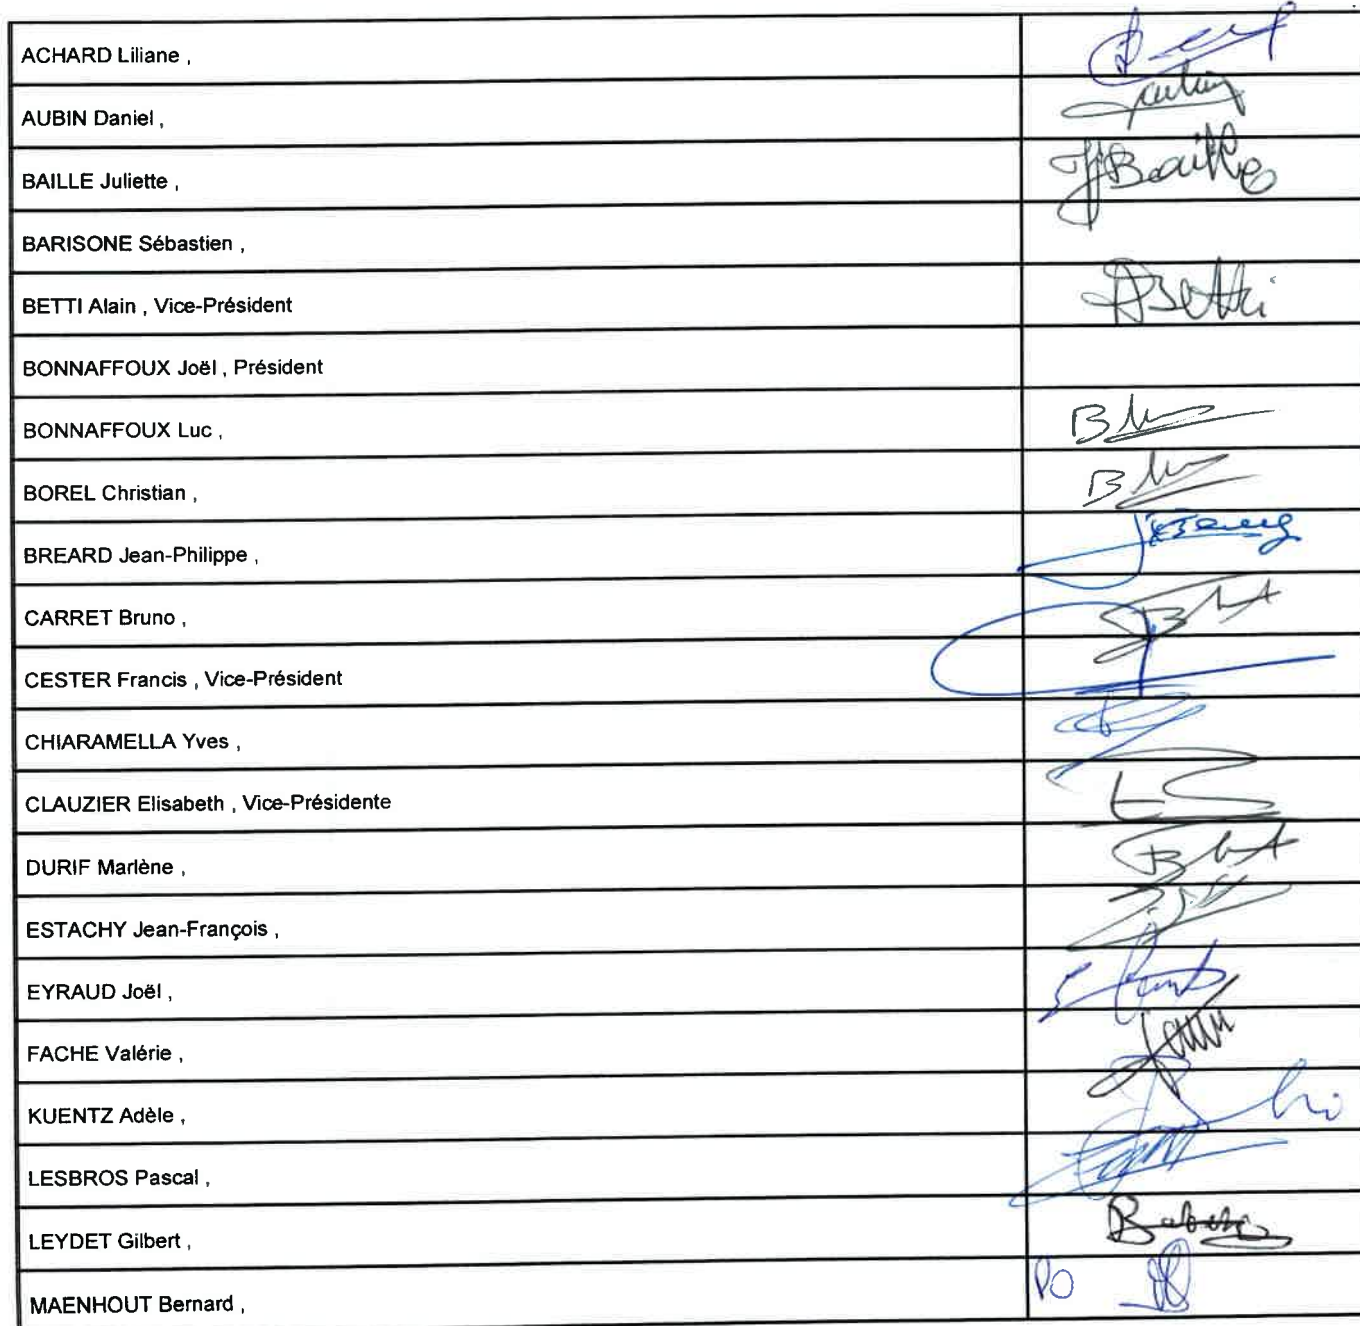 ACHARD Liliane ,
AUBIN Daniel ,
Aubin
BAILLE Juliette ,
JBaille
BARISONE Sébastien ,
BETTI Alain , Vice-Président
ABetti
BONNAFFOUX Joël , Président
BONNAFFOUX Luc ,
BOREL Christian ,
BREARD Jean-Philippe ,
CARRET Bruno ,
CESTER Francis , Vice-Président
CHIARAMELLA Yves ,
CLAUZIER Elisabeth , Vice-Présidente
DURIF Marlène ,
ESTACHY Jean-François ,
EYRAUD Joël ,
FACHE Valérie ,
KUENTZ Adèle ,
LESBROS Pascal ,
LEYDET Gilbert ,
MAENHOUT Bernard ,
PO